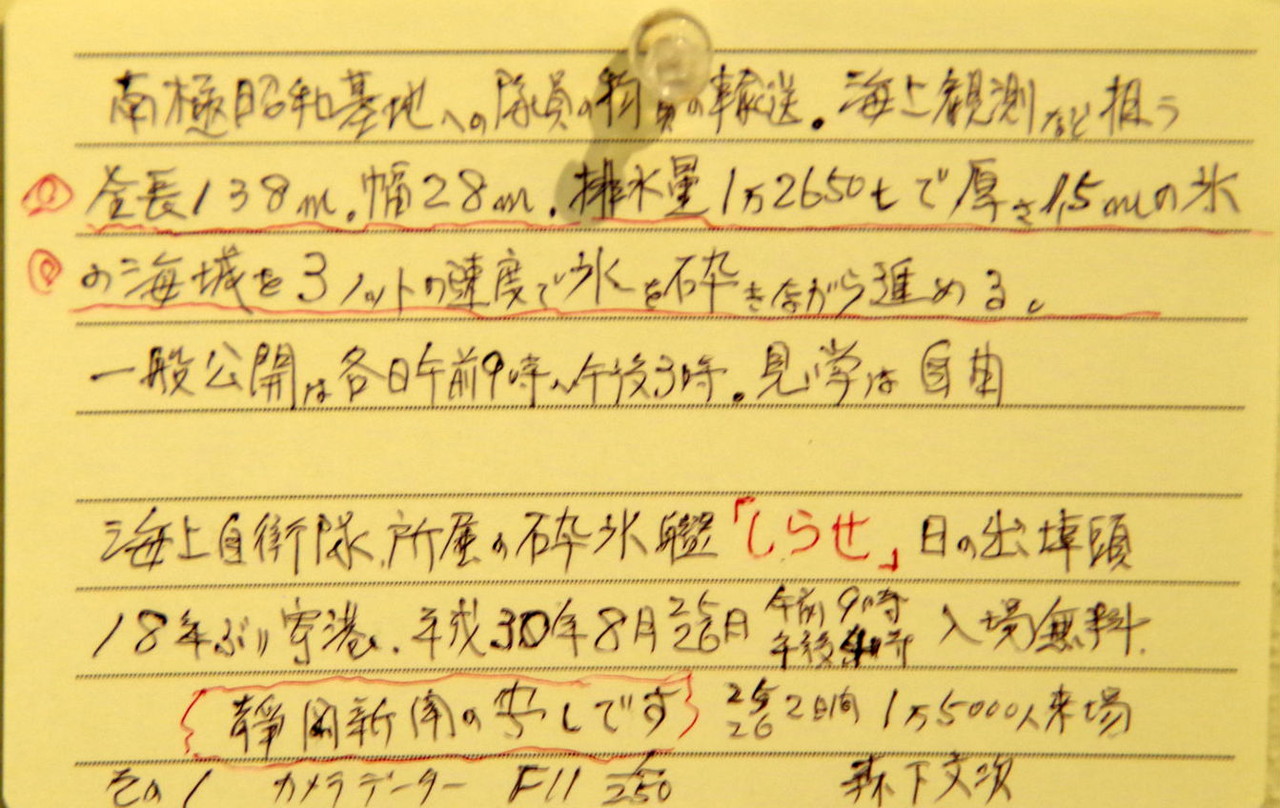 南極昭和基地への隊員や物資の輸送。海上観測など担う
全長138m。幅28m。排水量1万2650tで厚さ1.5mの氷
の海域を3ノットの速度で氷を砕きながら進める。
一般公開は各日午前9時〜午後3時。見学は自由
海上自衛隊、所属の砕氷艦「しらせ」日の出埠頭
18年ぶり寄港、平成30年8月25 26日 午前9時 午後 時 入場無料.
静岡新聞の写しです 25 26 2日間 1万5000人来場
その1 カメラデーター F11 1/250 森下文次